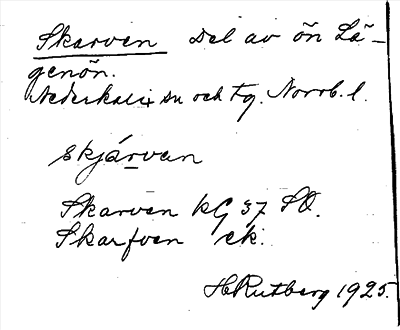 Skarven Del av ön Lå-
genön.
Nederkalix sn och tg. Norrb. l.
skjárvan
Skarven kG 37 SO.
Skarfven ek.
HRutberg 1925.